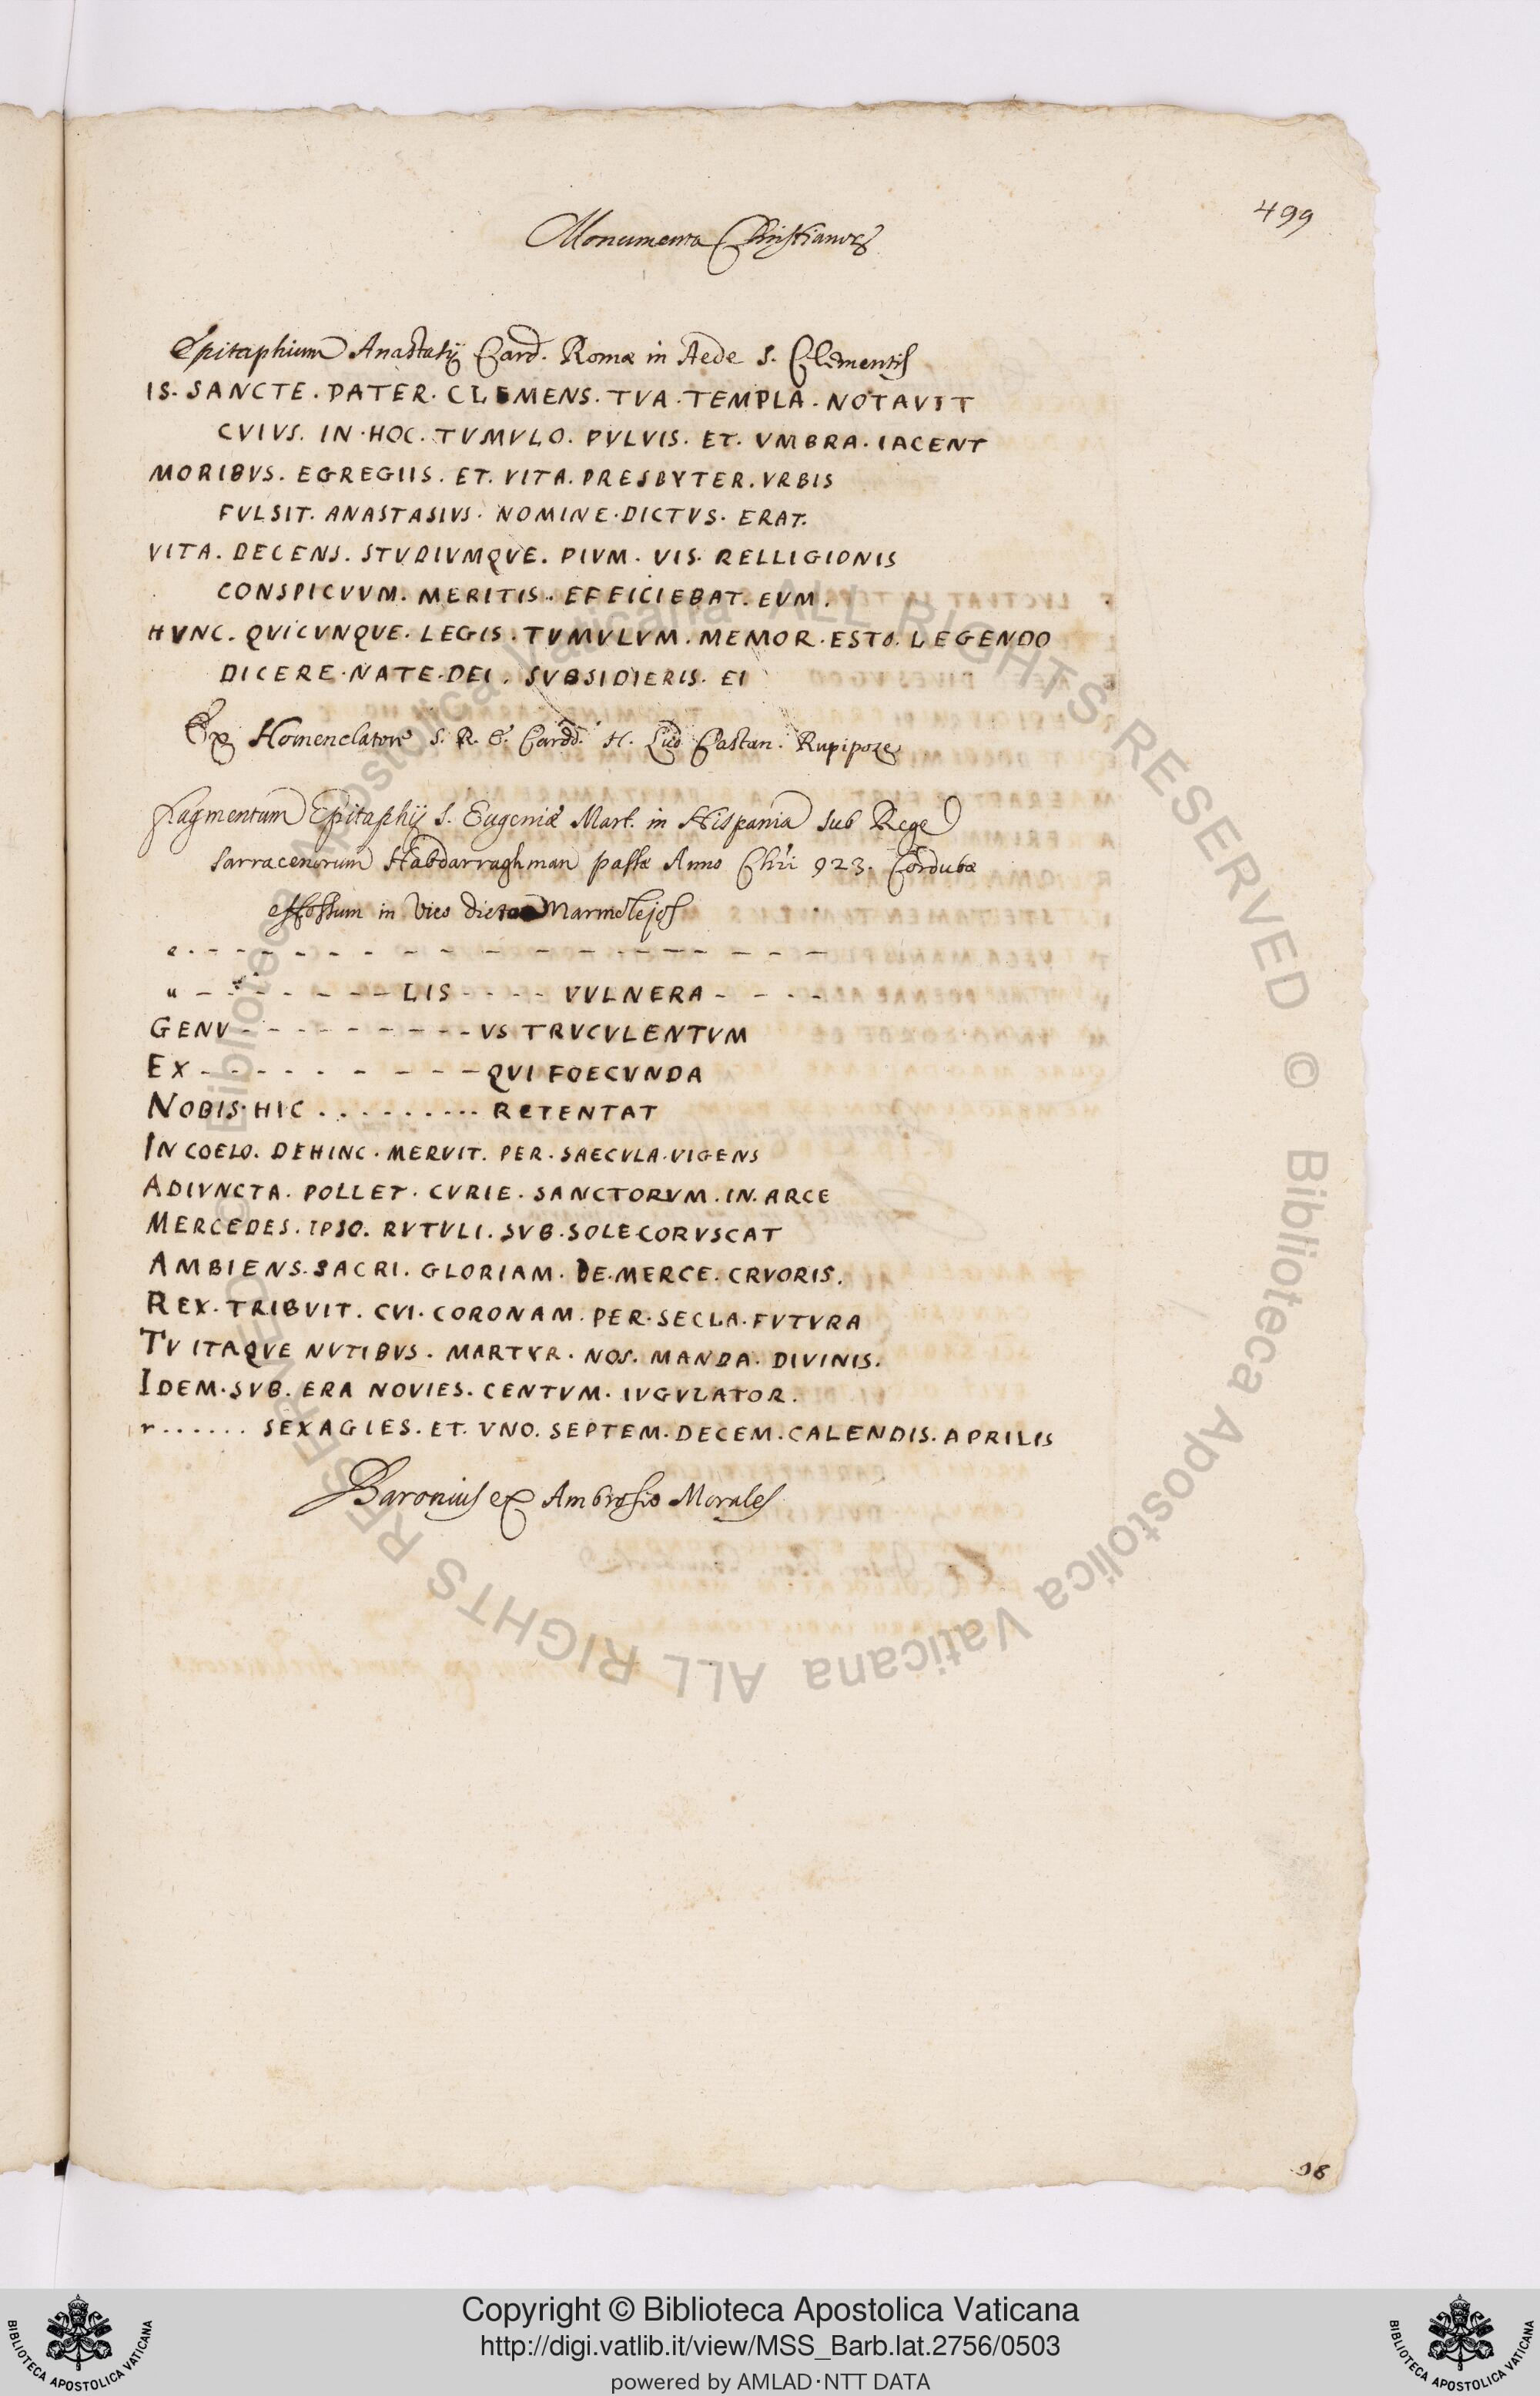 499
Monumenta Christianor
Epitaphium Anastasij Card. Romæ in Aede S. Clementis
IS. SANCTE. PATER. CLEMENS. TVA. TEMPLA. NOTAVIT
CVIVS. IN. HOC. TVMVLO. PVLVIS. ET. VMBRA. IACENT
MORIBVS. EGREGIIS. ET. VITA. PRESBYTER. VRBIS
FVLSIT. ANASTASIVS. NOMINE. DICTVS. ERAT.
VITA. DECENS. STVDIVMQVE. PIVM. VIS. RELLIGIONIS
CONSPICVVM. MERITIS. EFFICIEBAT. EVM.
HVNC. QVICVNQVE. LEGIS. TVMVLVM. MEMOR. ESTO. LEGENDO
DICERE. NATE. DEI. SVBSIDIERIS. EI
Ex Homenclatore S. R. E. Cardd. H. Lud Castan. Rupipozei
fragmentum Epitaphij S. Eugeniæ Mart. in Hispania sub Rege
Sarracenorum Habdarraghman passæ Anno Chri 923. Cordubæ
effossum in Vico dicto Marmolejos
e. - - - - - - - - - - - - - - - - - -
u - - - - - - - LIS - - - - VVLNERA - - - -
GENV - - - - - - - - - VS TRVCVLENTVM
EX - - - - - - - - - QVI FOECVNDA
NOBIS. HIC . . . . . . . . . RETENTAT
IN COELO. DEHINC. MERVIT. PER. SAECVLA. VIGENS
ADIVNCTA. POLLET. CVRIE. SANCTORVM. IN. ARCE
MERCEDES. IPSO. RVTVLI. SVB. SOLE CORVSCAT
AMBIENS. SACRI. GLORIAM. DE. MERCE. CRVORIS.
REX. TRIBVIT. CVI. CORONAM. PER. SECLA. FVTVRA
TV ITAQVE NVTIBVS. MARTYR. NOS. MANDA. DIVINIS.
IDEM. SVB. ERA NOVIES. CENTVM. IVGVLATOR.
r . . . . . . SEXAGIES. ET. VNO. SEPTEM. DECEM. CALENDIS. APRILIS
Baronius ex Ambrosio Morales
98
© Biblioteca Apostolica Vaticana ALL RIGHTS RESERVED © Biblioteca Apostolica Vaticana ALL RIGHTS RESERVED
Copyright © Biblioteca Apostolica Vaticana
http://digi.vatlib.it/view/MSS_Barb.lat.2756/0503
powered by AMLAD·NTT DATA
BIBLIOTECA APOSTOLICA VATICANA
BIBLIOTECA APOSTOLICA VATICANA